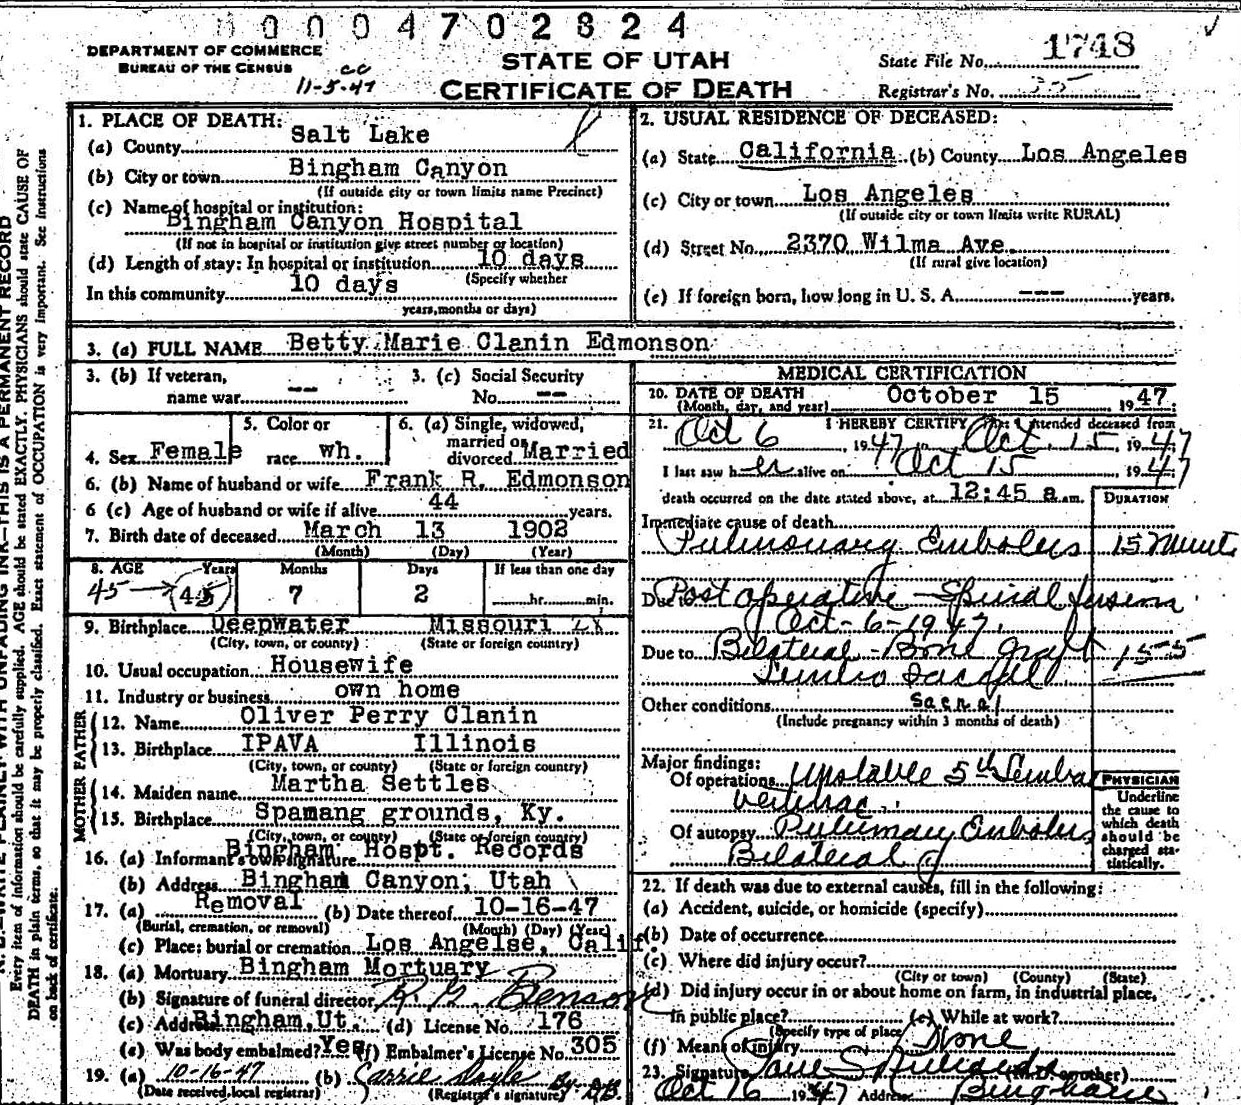 0004702824
DEPARTMENT OF COMMERCE
BUREAU OF THE CENSUS
cc
11-5-47
STATE OF UTAH
CERTIFICATE OF DEATH
State File No. 1748
Registrar's No.
N. B.—WRITE PLAINLY WITH UNFADING INK—THIS IS A PERMANENT RECORD
Every item of information should be carefully supplied. AGE should be stated EXACTLY. PHYSICIANS should state CAUSE OF
DEATH in plain terms, so that it may be properly classified. Exact statement of OCCUPATION is very important. See instructions
on back of certificate.
1. PLACE OF DEATH:
(a) County Salt Lake
(b) City or town Bingham Canyon
(If outside city or town limits name Precinct)
(c) Name of hospital or institution:
Bingham Canyon Hospital
(If not in hospital or institution give street number or location)
(d) Length of stay: In hospital or institution 10 days
(Specify whether
In this community 10 days
years, months or days)
2. USUAL RESIDENCE OF DECEASED:
(a) State California (b) County Los Angeles
(c) City or town Los Angeles
(If outside city or town limits write RURAL)
(d) Street No. 2370 Wilma Ave.
(If rural give location)
(e) If foreign born, how long in U. S. A. --- years.
3. (a) FULL NAME Betty Marie Clanin Edmonson
3. (b) If veteran,
name war --
3. (c) Social Security
No. --
4. Sex Female
5. Color or
race wh.
6. (a) Single, widowed,
married or
divorced Married
6. (b) Name of husband or wife Frank R. Edmonson
6 (c) Age of husband or wife if alive 44 years.
7. Birth date of deceased March 13 1902
(Month) (Day) (Year)
8. AGE Years Months Days If less than one day
45 (45) 7 2 hr. min.
9. Birthplace Deepwater Missouri
(City, town, or county) (State or foreign country)
10. Usual occupation Housewife
11. Industry or business own home
FATHER
12. Name Oliver Perry Clanin
13. Birthplace IPAVA Illinois
(City, town, or county) (State or foreign country)
MOTHER
14. Maiden name Martha Settles
15. Birthplace Spamang grounds, Ky.
(City, town, or county) (State or foreign country)
16. (a) Informant's own signature Bingham Hospt. Records
(b) Address Bingham Canyon, Utah
17. (a) Removal (b) Date thereof 10-16-47
(Burial, cremation, or removal) (Month) (Day) (Year)
(c) Place: burial or cremation Los Angelse, Calif.
18. (a) Mortuary Bingham Mortuary
(b) Signature of funeral director Benson
(c) Address Bingham, Ut. (d) License No. 176
(e) Was body embalmed? Yes (f) Embalmer's License No. 305
19. (a) 10-16-47 (b) Carrie Doyle
(Date received local registrar) (Registrar's signature)
MEDICAL CERTIFICATION
20. DATE OF DEATH October 15 1947.
(Month, day, and year)
21. I HEREBY CERTIFY That I attended deceased from
Oct 6, 1947 to Oct. 15, 1947
I last saw her alive on Oct 15 1947
death occurred on the date stated above, at 12:45 a.m.
DURATION
Immediate cause of death
Pulmonary Embolus 15 Minute
Due to Post operative - Spinal fusion
Oct-6-1947.
Due to Bilateral - Bone graft
Sacral
Other conditions
(Include pregnancy within 3 months of death)
Major findings:
Of operations Unstable 5th
Of autopsy Pulmonary Embolus
Bilateral
PHYSICIAN
Underline
the cause to
which death
should be
charged sta-
tistically.
22. If death was due to external causes, fill in the following:
(a) Accident, suicide, or homicide (specify)
(b) Date of occurrence
(c) Where did injury occur?
(City or town) (County) (State)
(d) Did injury occur in or about home on farm, in industrial place,
in public place? (e) While at work?
(Specify type of place)
(f) Means of injury None
23. Signature
Oct 16 1947 Address Bingham